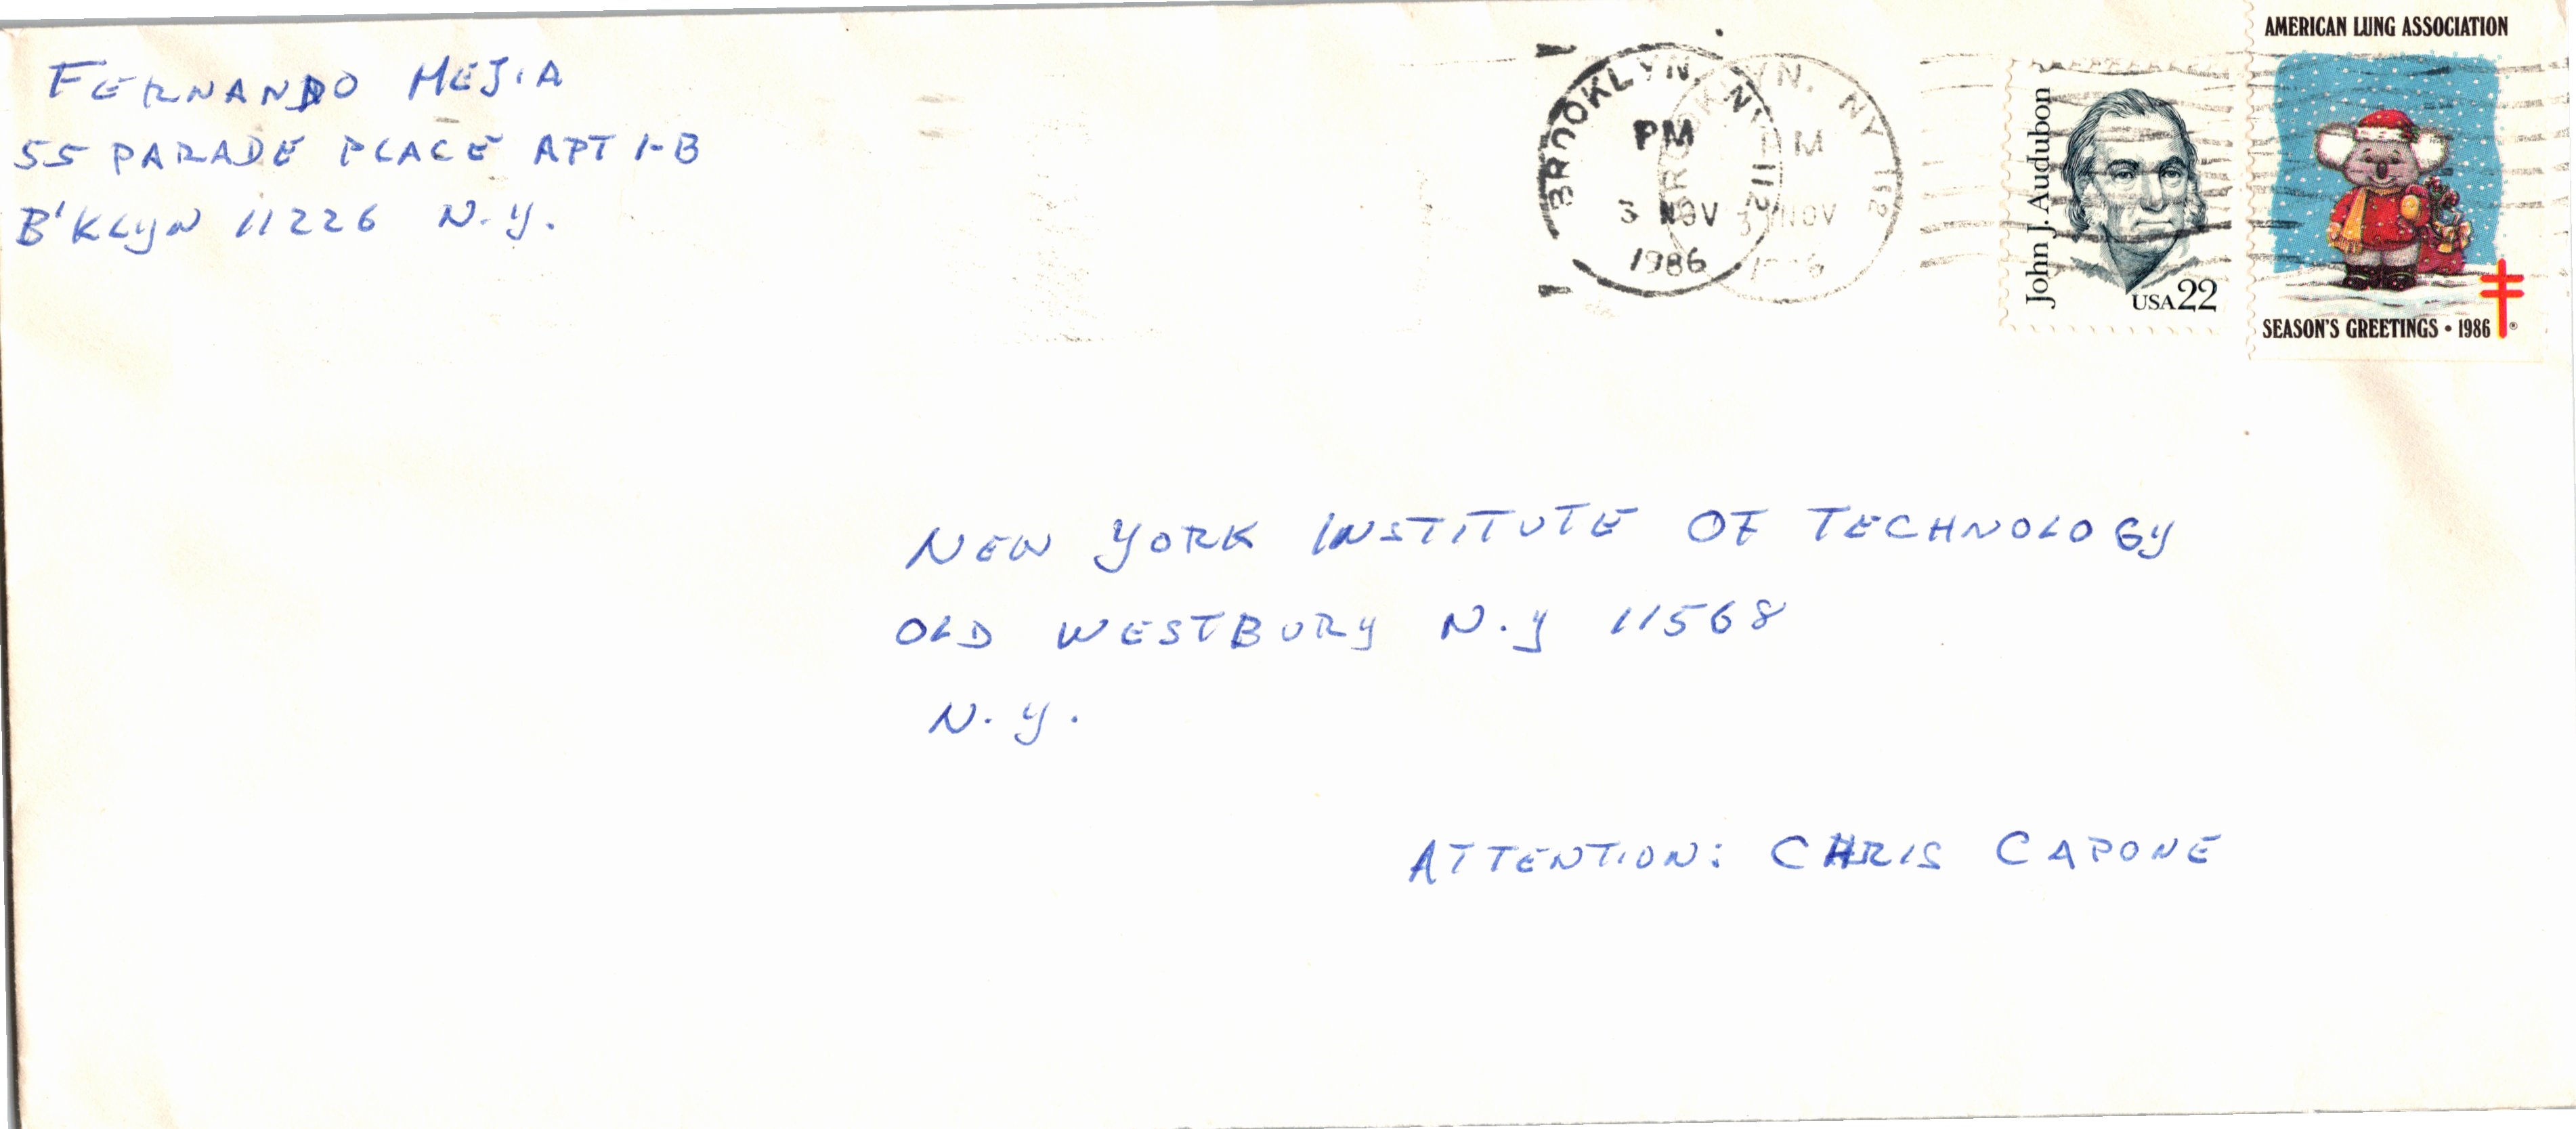 FERNANDO MEJIA
55 PARADE PLACE APT 1-B
B'KLYN 11226 N.Y.
BROOKLYN, NY 112
PM
3 NOV
1986
YN, NY 112
M
3 NOV
John J. Audubon
USA 22
AMERICAN LUNG ASSOCIATION
SEASON'S GREETINGS • 1986 ®
NEW YORK INSTITUTE OF TECHNOLOGY
OLD WESTBURY N.Y 11568
N.Y.
ATTENTION: CHRIS CAPONE